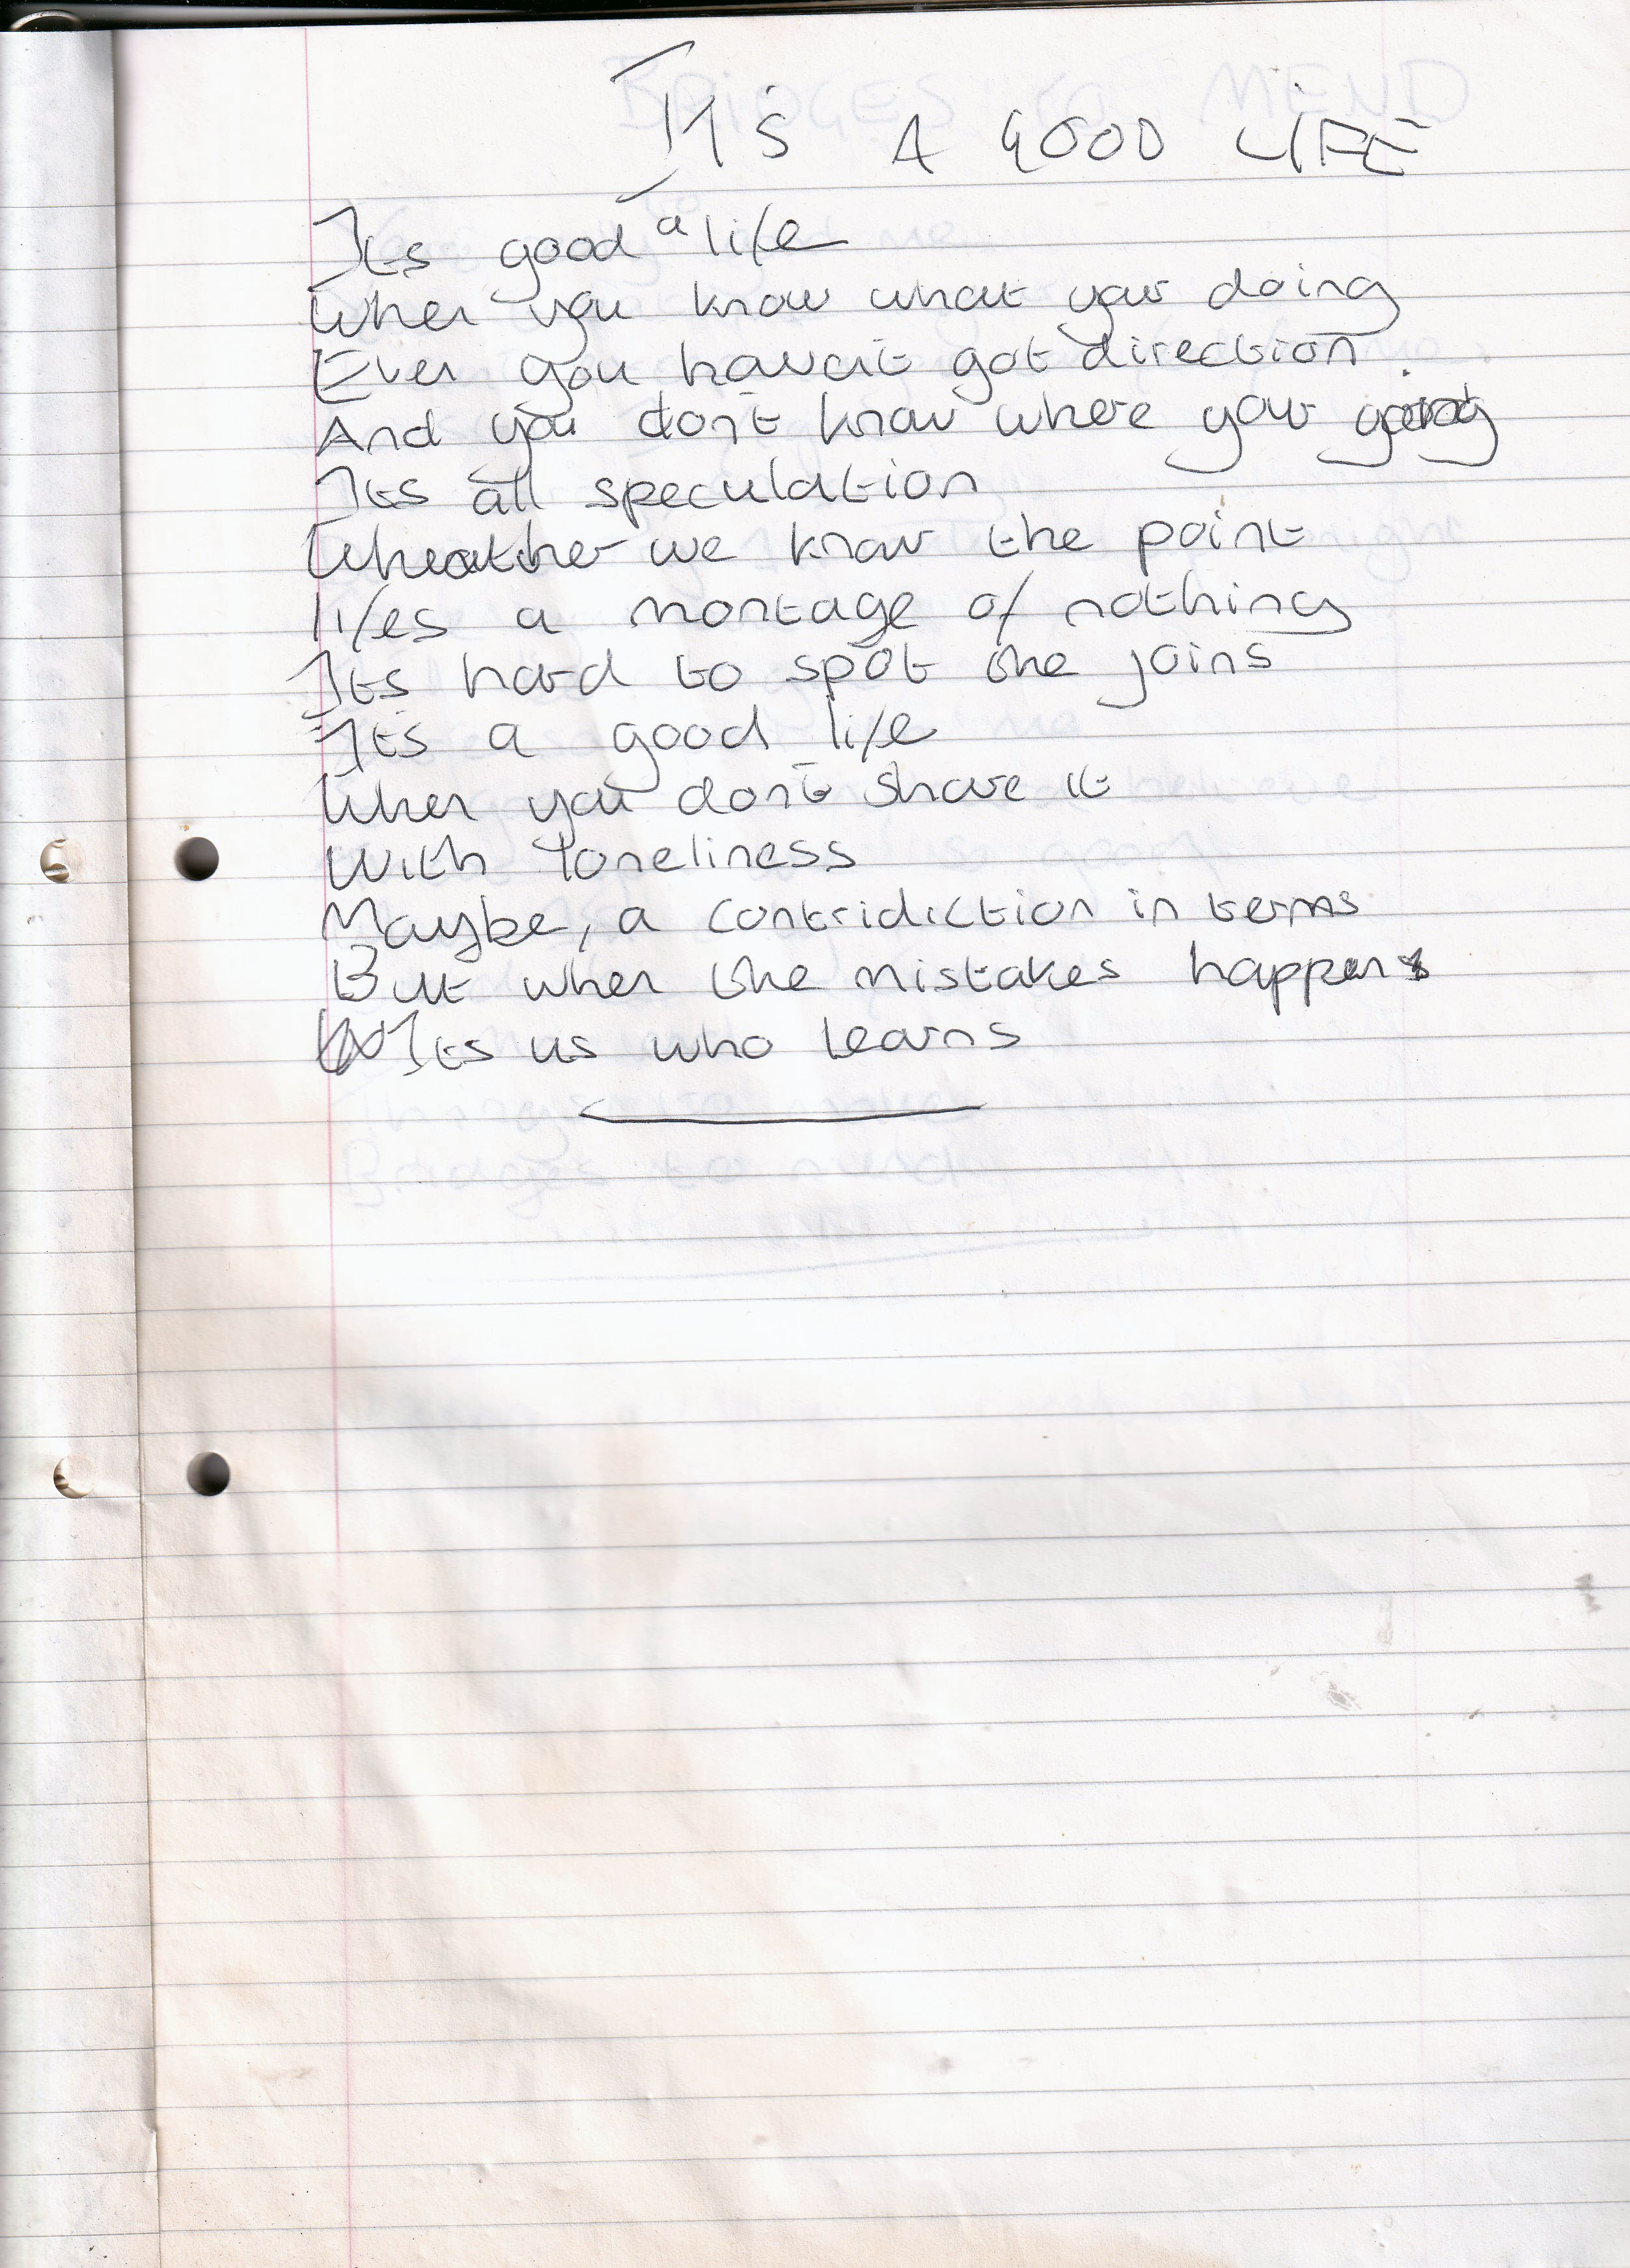 IT'S A GOOD LIFE
Its good a life
When you know what your doing
Even you haven't got direction.
And you don't know where your going
Its all speculation
Wheather we know the point
lifes a montage of nothing
Its hard to spot the joins
Its a good life
When you don't share it
With loneliness
Maybe, a contridiction in terms
But when the mistakes happens
Its us who learns